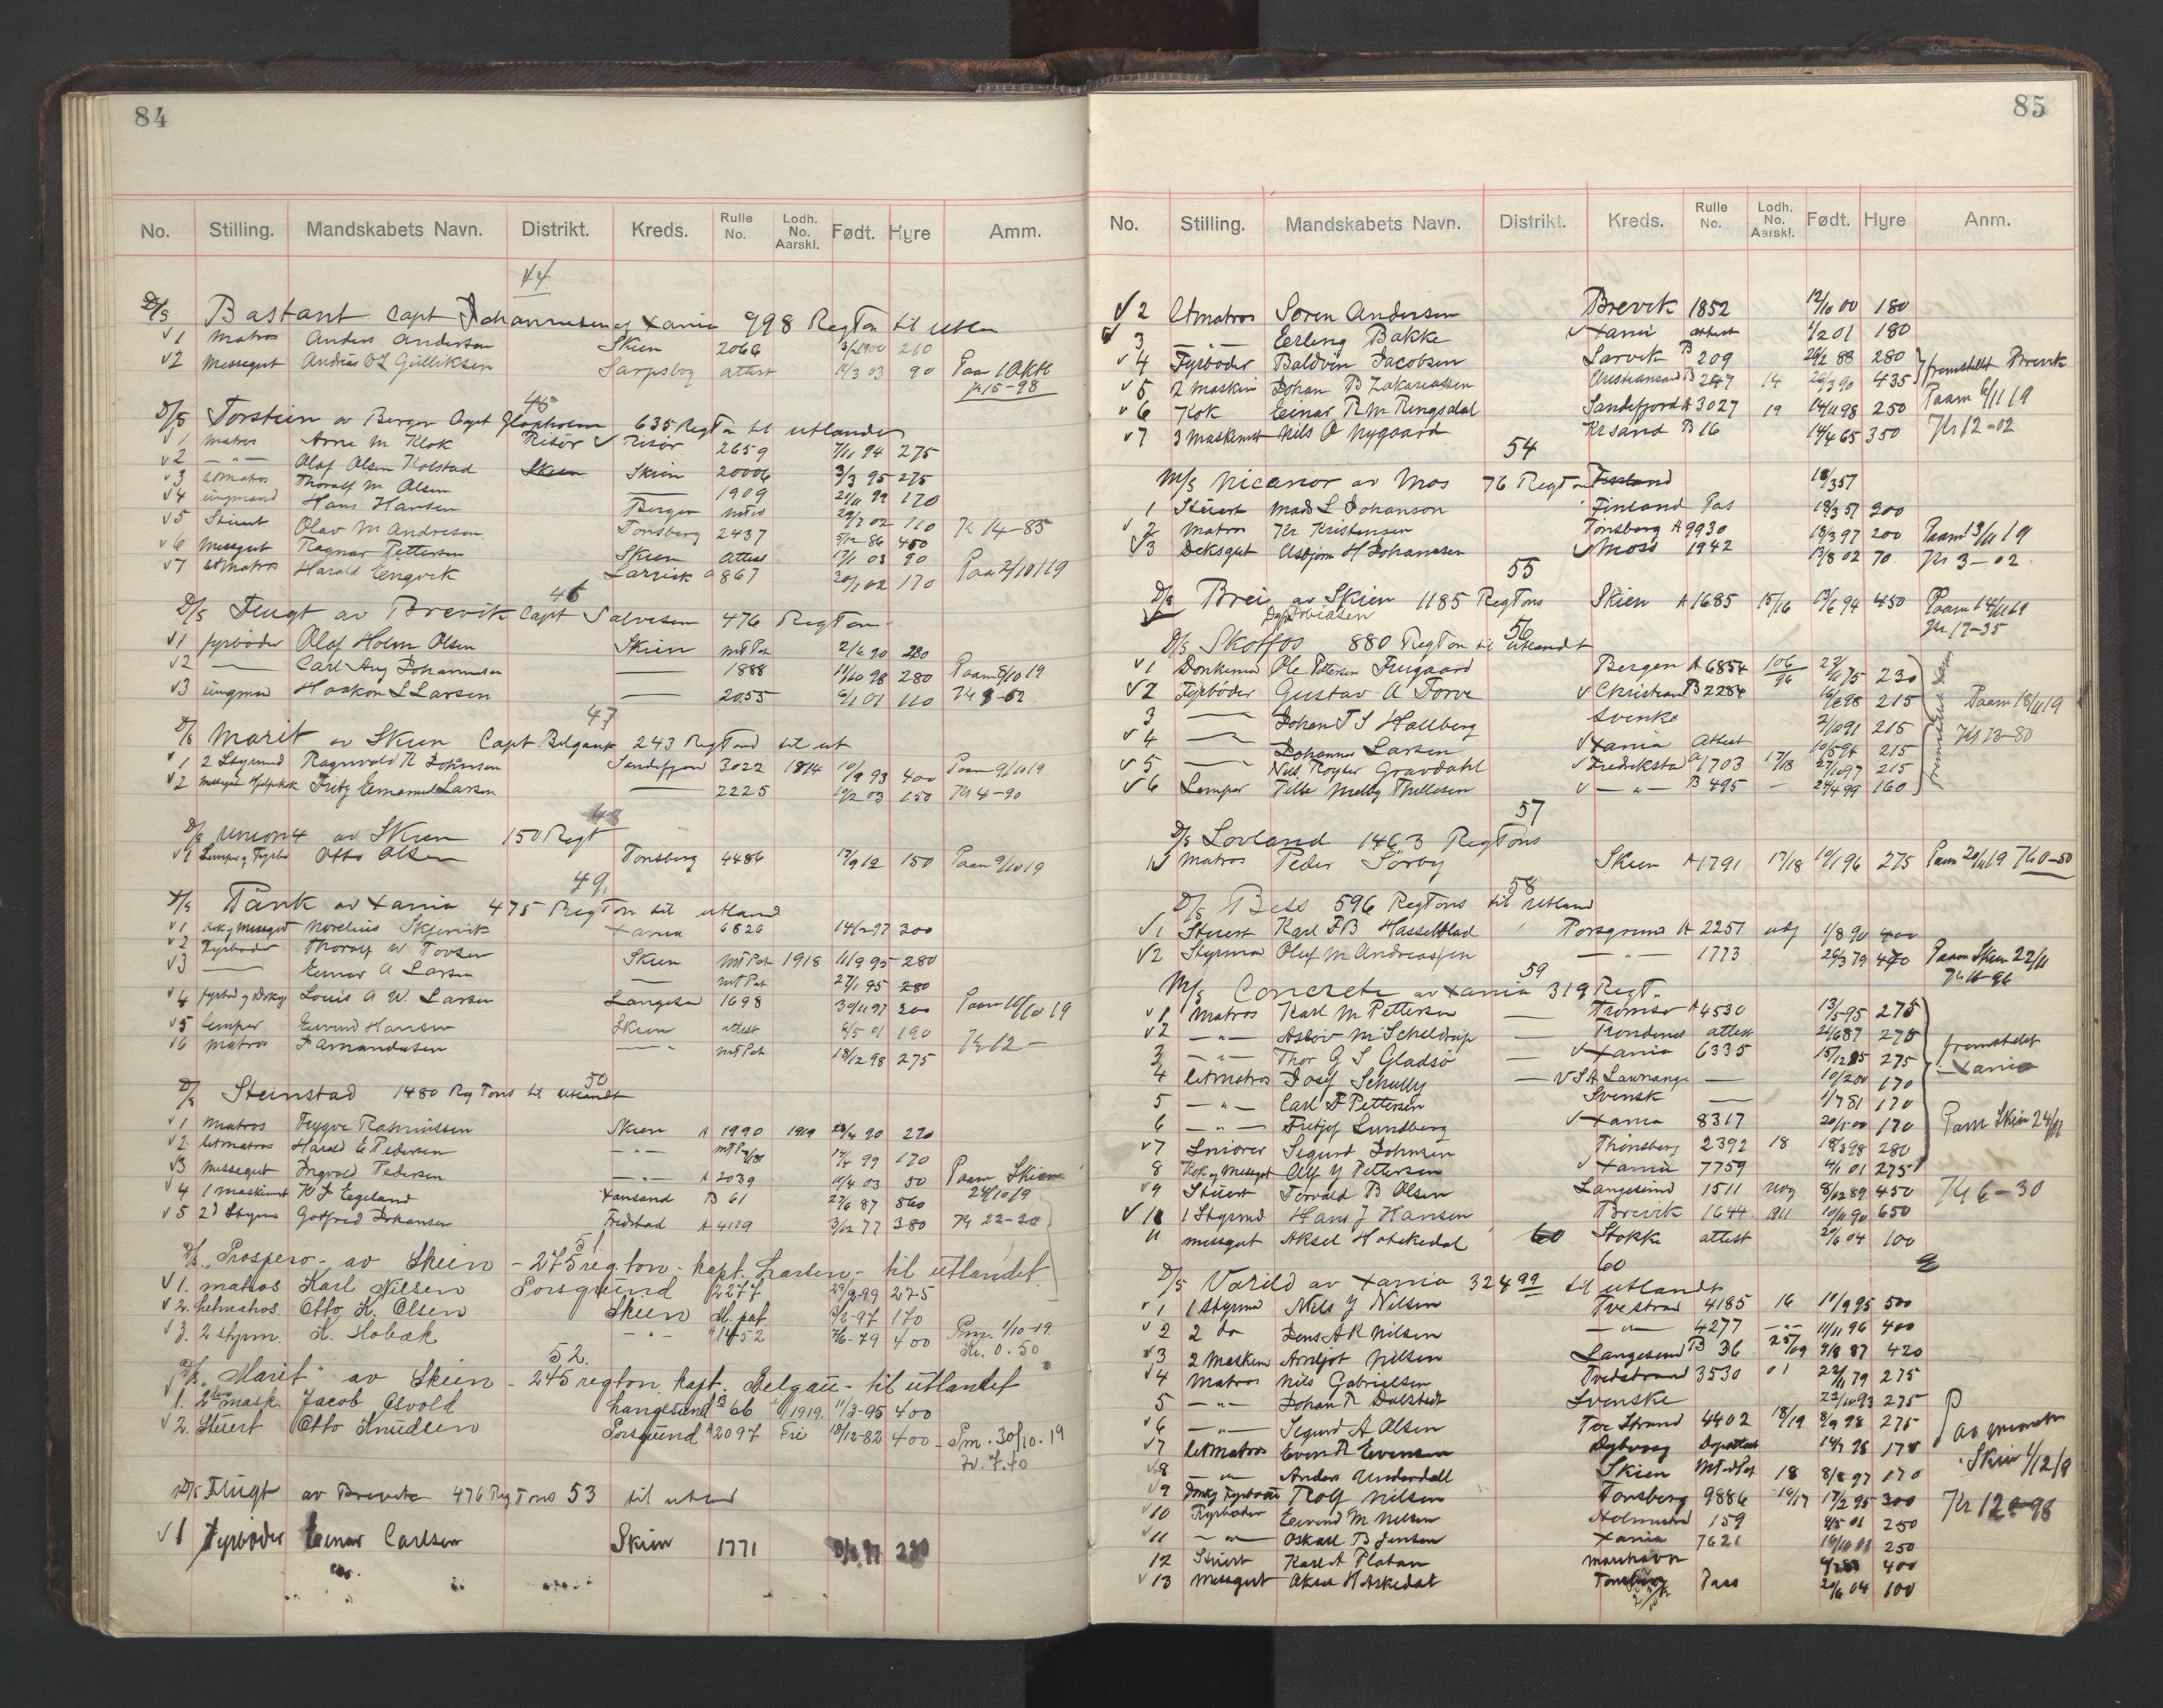 84
No. Stilling. Mandskabets Navn. Distrikt. Kreds. Rulle No. Lodh. No. Aarskl. Født. Hyre Amm.
44
D/S Bastant Capt Johannesen af Xania 998 RegTon til utlan
v1 Matros Anders Andersen Skien 2066 210
v2 Messegut Andreas O L Gulliksen Sarpsbg attest 11/3 03 90 Paam 1 Okt
15-98
45
D/S Torstein av Bergen Capt 635 RegTon til utlandet
v1 Matros Arne M Klok Risör v Risör 2659 7/11 94 275
v2 — " — Olaf Olsen Kolstad Skien Skien 20006 3/3 95 275
v3 Letmatros Thoralf M Olsen — 1909 21/11 99 170
v4 ungmand Hans Hansen Bergen 29/7 02 110
v5 Stuert Olav M Andresen Tonsberg 2437 5/12 86 450 Kr 14-85
v6 Messegut Ragnar Pettersen Skien Attest 17/1 03 90
v7 Letmatros Harald Engvik Larvik a 867 20/1 02 170 Paa 2/10 19
46
D/S Flugt av Brevik Capt Salvesen 476 RegTon
v1 fyrböder Olaf Holm Olsen Skien Mt Pat 2/6 90 280
v2 — Carl Aug Johannesen — 1888 11/10 98 280 Paam 8/10 19
v3 ungmand Haakon L Larsen — 2055 6/1 01 110 Kr 8-62
47
D/S Marit av Skien Capt Belgaut 243 RegTond til ut
v1 2 Styrmd Ragnvald R Johnsen Sandefjord 3022 1814 10/9 93 400 Paam 9/10 19
v2 Fritz Emanuel Larsen — 2225 10/2 03 150 Kr 4-90
48
D/S Union 4 av Skien 150 Regt
v1 Lemper og Fyrbö Otto Olsen Tonsberg 4486 17/9 12 150 Paam 9/10 19
49.
D/S Tank av Xania 475 RegTon til utland
v1 Kok og Messegut Norelius Skjenvik Xania 6826 14/12 97 300
v2 Fyrböder Thoralf W Torsen Skien Mt Pat 1918 11/9 95 280
v3 — Einar A Larsen — Mt Pat 27/1 95 280
v4 Louis A W Larsen Langesu 1698 30/11 97 300 Paam 10/10 19
v5 lemper Eivind Hansen Skien attest 6/5 01 190
v6 matros J Amandusen — " — Mt Pat 18/12 98 275 Kr 12 —
50
D/S Steinstad 1480 RegTons til utlandt
v1 Matros Trygve Rasmussen Skien A 1990 1919 28/4 90 270
v2 letmatros Harald E Pedersen — " — 99 170
v3 Messegut Ingvald Pedersen — " — A 2039 11/4 03 50 Paam Skien
v4 1 maskinist K J Egeland Xansand B 61 27/6 87 560 24/10 19
v5 2d Styrm Gotfred Johansen Fredstad A 4119 3/12 77 380 Kr 22-30
51
D/S. "Prospero" av Skien - 275 reg.ton - kapt. Larsen - til utlandet.
v1. matros Karl Nilsen Porsgrund 2277 29/2-99 275
v2. Letmatros. Otto K. Olsen Skien M. pat. 3/2-97 170
v3. 2 styrm. K. Hobæk — " — 1452 7/6-79 400 Pm. 1/10-19.
Kr. 0.50
52.
D/S. "Marit" av Skien - 245 regton kapt. Belgau - til utlandet
v1. 2den mask. Jacob Osvold Langesund B 66 1919. 11/3-95 400
v2. Stuert Otto Knudsen Porsgrund A 2097 Fri 18/12-82 400 - Pm. 30/10.19
Kr. 7.70
D/S Flugt av Brevik 476 RegTons 53 til utland
v1 Fyrböder Einar Carlsen Skien 1771
85
No. Stilling. Mandskabets Navn. Distrikt. Kreds. Rulle No. Lodh. No. Aarskl. Født. Hyre Anm.
v2 Letmatros Soren Andersen Brevik 1852 12/11 00 180
v3 — " — Erling Bakke v Xania attest 1/2 01 180
v4 Fyrböder Baldvin Jacobsen Larvik B 209 26/2 88 280 fremstillet Brevik
v5 2 Maskin Johan B Zakariassen Christiansand B 247 14 26/3 90 435
v6 Kok Einar R M Ringsdal Sandefjord A 3027 19 14/11 98 250 Paam 6/11 19
v7 3 Maskinist Nils O Nygaard Krsand B 16 14/4 65 350 Kr 12-02
54
M/S Nicanor av Mos 76 RegTon Finland 18/3 57
1 Stuert Mads L Johanson Finland Pas 18/3 57 200
v2 Matros Kr Kristensen Tonsberg A 9930 13/3 97 200 Paam 13/11 19
v3 Deksgut Asbjörn H Johannesen v Moss 1942 13/8 02 70 Kr 3-02
55
D/S Brei av Skien 1185 RegTons Skien A 1685 15/16 13/6 94 450 Paam 14/11 19
Kr 17-35
56
D/S Skotfos 880 RegTon til utlandt
v1 Donkeman Ole Pettersen Furgaard Bergen A 6854 106/96 23/11 75 230
v2 Fyrböder Gustav A Torve v Christians B 2284 16/2 98 215 Paam 18/11 19
3 — Johan T S Hallberg Svenke 2/10 91 215
v4 — Johannes Larsen v Xania Attest 10/5 94 215 Kr 23-80
v5 — Nils Royter Gravdahl v Fredrikstad a 1703 17/18 27/10 97 215
v6 Lemper Telle Melby Thellesen v — " — B 495 — 24/4 99 160
57
D/S Lovland 1463 RegTons
1v Matros Peder Sörby Skien A 1791 17/18 10/1 96 275 Paam 20/11 19 Kr 0-50
58
D/S Bess 596 RegTons til Utland
v1 Stuert Karl F B Hasselblad Porsgrund A 2257 udg 1/8 90 400
v2 Styrman Oluf M Andreassen — " — 1773 26/3 79 470 Paam Skien 22/11
59
M/S Concrete av Xania 319 RegT.
v1 Matros Karl M Pettersen — Tromsö A 4530 13/5 95 275
v2 — " — Aslov M Scheldrup Trondenes attest 21/6 87 275
3 — " — Thor G S Gladsö — v Xania 6335 15/12 95 275 fremstillet
4 letmatros Josef Schully — v S A Lawrange — 10/2 00 170 Xania
5 — " — Carl F Pettersen Svensk — 1/7 81 170
6 — " — Fritjof Lundberg v Xania 8317 20/1 00 170 Paam Skien 24/11
v7 Smörer Sigurd Johnsen Thönsberg 2392 18 18/3 98 280
8 Kok og Messegut Alf Y Pettersen v Xania 7759 4/1 01 275
v9 Stuert Torvald B Olsen Langesund 1511 8/12 89 450 Kr 6-30
v 10 1 Styrmd Hans J Hansen Brevik 1644 1911 10/11 90 650
11 messgut Aksel Hotskedal 60 Stokke attest 20/6 04 100
60
D/S Varild av Xania 324 99 til utlandt
v1 1 Styrmd Nils Y Nilsen Tvestrand 4185 16 11/9 95 500
v2 2 do Jens A R Nilsen — " — 4277 — " — 11/11 96 400
v3 2 Maskin Arnljot Nilsen Langesund B 36 25/09 9/8 87 420
v4 Matros Nils Gabrielsen Tvedstrand 3530 01 22/11 79 275
5 — " — Johan R Dalstedt Svenske 22/10 93 275
v6 — " — Sigurd A Olsen Tve Strand 4402 18/19 8/9 98 275
v7 letmatros Even R Evensen Dybvaag 14/7 98 170
v8 — " — Anders Underdall Skien Mt Pat 18 8/8 97 170 Skien 1/12 19
v9 Donky Fyrböder Rolf Nilsen Tonsberg 9886 16/17 17/2 95 300
v10 Fyrböder Eivind M Nilsen Holmestrand 159 4/5 01 250 Kr 12-98
v11 — " — Oskarl B Jensen Xania 7621 250
12 Stuert Karl A Platau 400
v13 Messgut Aksel Hotskedal Tonsberg Pass 20/6 04 100